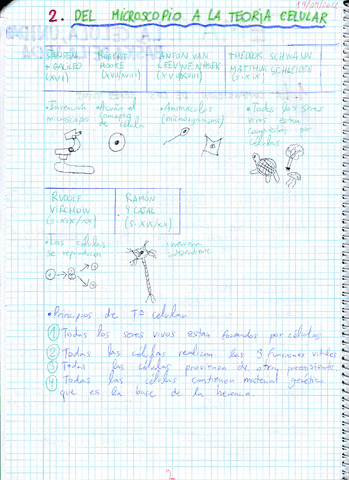 2. DEL MICROSCOPIO A LA TEORÍA CELULAR
JANSSEN
+ GALILEO
(XVII)
ROBERT
HOOKE
(XVII/XVIII)
ANTON VAN
LEEUWENHOEK
(XVII/XVIII)
THEODOR SCHWANN
MATTHIAS SCHLEIDEN
(S.XIX)
• Invención
microscopio
• Acuñó el
concepto
de célula
• Animáculos
(microorganismos)
• Todos los seres
vivos están
compuestos por
células
RUDOLF
VIRCHOW
(S.XIX/XX)
RAMÓN
Y CAJAL
(S. XIX/XX)
• Las células
se reproducen
neuronas
• Principios de Tª celular
1 Todos los seres vivos están formados por células
2 Todas las células realizan las 3 funciones vitales
3 Todas las células provienen de otra preexistente
4 Todas las células contienen material genético
que es la base de la herencia.
2